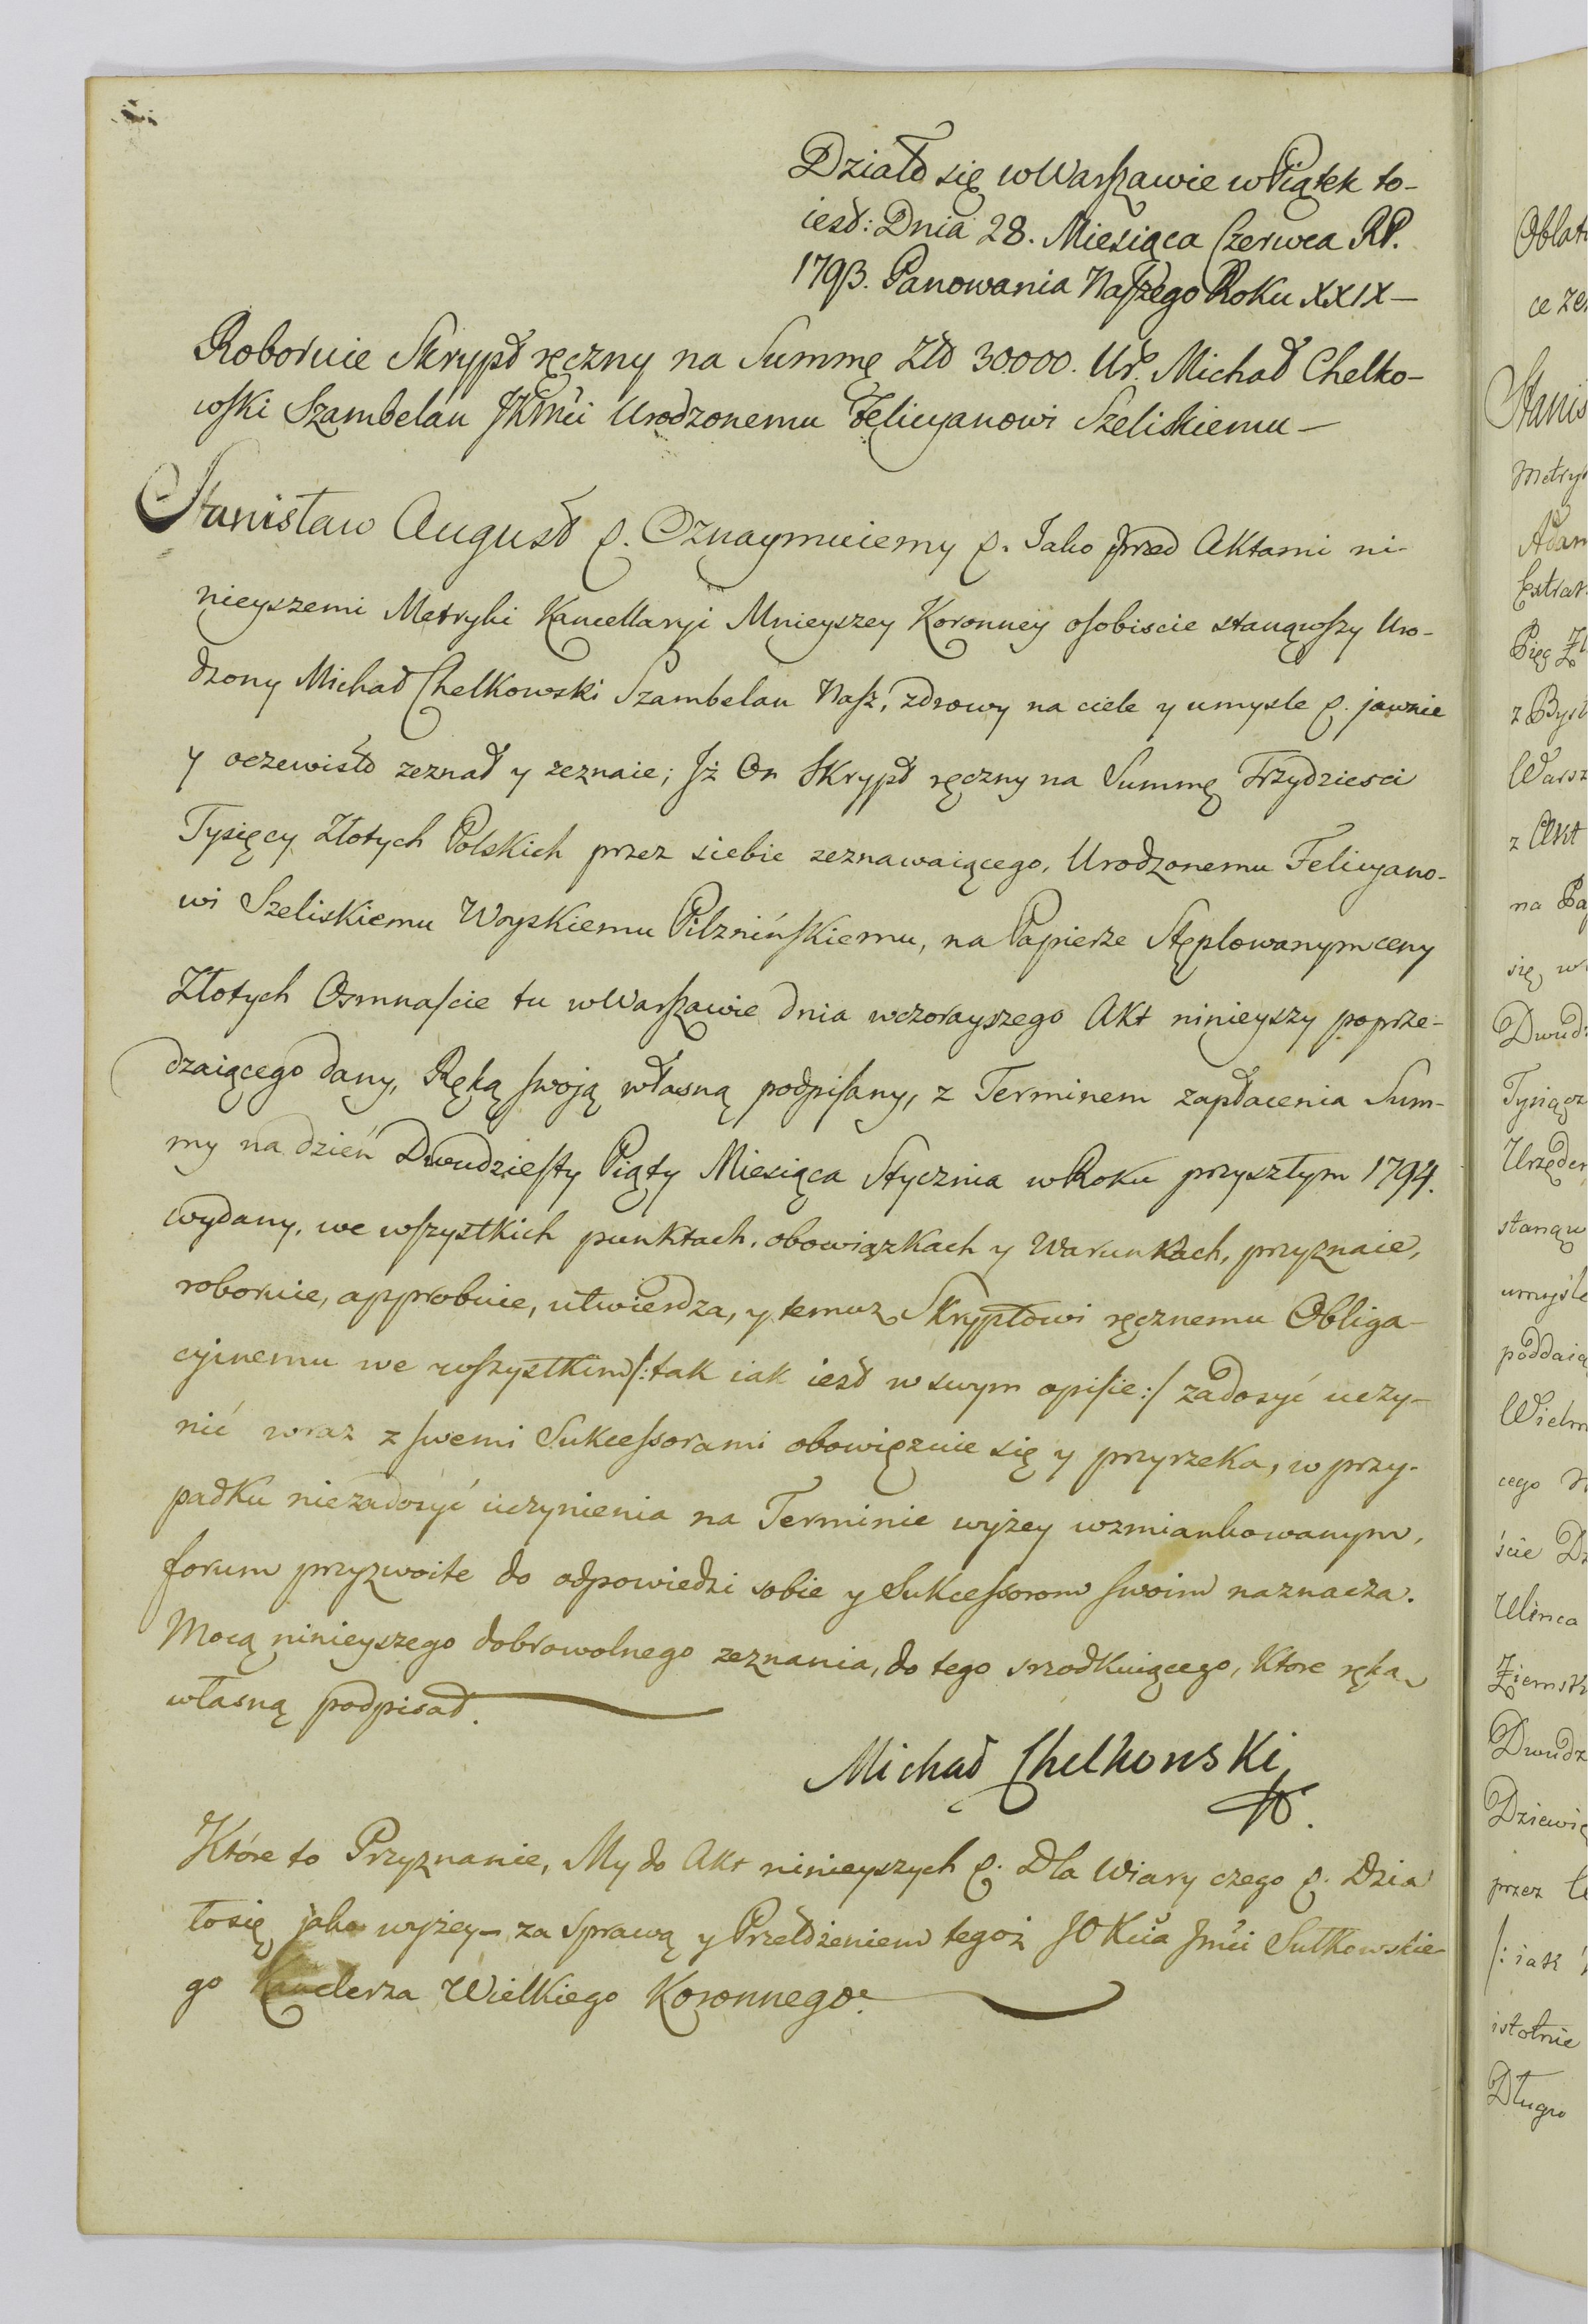 Działo się w Warszawie w Piątek to-
iest: Dnia 28. Miesiąca Czerwca RP.
1793. Panowania Naszego Roku XXIX —
Roboruie Skrypt ręczny na Summę Złł 30000. Ur. Michał Chelko-
wski Szambelan JKMci Urodzonemu Felicyanowi Szeliskiemu —
Stanisław August &. Oznaymuiemy &. Jako przed Aktami ni-
nieyszemi Metryki Kancellaryi Mnieyszey Koronney osobiscie stanąwszy Uro-
dzony Michał Chelkowski Szambelan Nasz, zdrowy na ciele y umysle &. jawnie
y oczewisto zeznał y zeznaie; Jż On Skrypt ręczny na Summę Trzydziesci
Tysięcy Złotych Polskich przez siebie zeznawaiącego, Urodzonemu Felicyano-
wi Szeliskiemu Woyskiemu Pilznińskiemu, na Papierze Stęplowanym ceny
Złotych Osmnascie tu w Warszawie dnia wczorayszego Akt ninieyszy poprze-
dzaiącego dany, Ręką swoją własną podpisany, z Terminem zapłacenia Sum-
my na dzień Dwudziesty Piąty Miesiąca Stycznia w Roku przyszłym 1794.
wydany, we wszystkich punktach, obowiązkach y Warunkach, przyznaie,
roboruie, approbuie, utwierdza, y temuz Skryptowi ręcznemu Obliga-
cyinemu we wszystkim /: tak iak iest w swym opisie :/ zadosyć uczy-
nić wraz z swemi Sukcessorami obowięzuie się y przyrzeka, w przy-
padku niezadosyć uczynienia na Terminie wyżey wzmiankowanym,
forum przyzwoite do odpowiedzi sobie y Sukcessorom swoim naznacza.
Mocą ninieyszego dobrowolnego zeznania, do tego srzodkuiącego, ktore ręką
własną podpisał.
Michał Chelkowski
Które to Przyznanie, My do Akt ninieyszych &. Dla Wiary czego &. Dzia
ło się jako wyżey — za Sprawą y Przełożeniem tegoż JO Kcia Jmci Sułkowskie-
go Kanclerza Wielkiego Koronnego.
Oblat
ce ze
Stanis
Metry
Adam
Extrak
Pięć Zł
z Byst
Warsz
z Akt
na Pa
się w
Dwudz
Tysiącz
Urzęder
stanąw
umyśle
poddaią
Wielm
cego
ście Dz
Ulinca
Ziemsk
Dwudz
Dziewię
przez
/: iak
istotnie
Długo